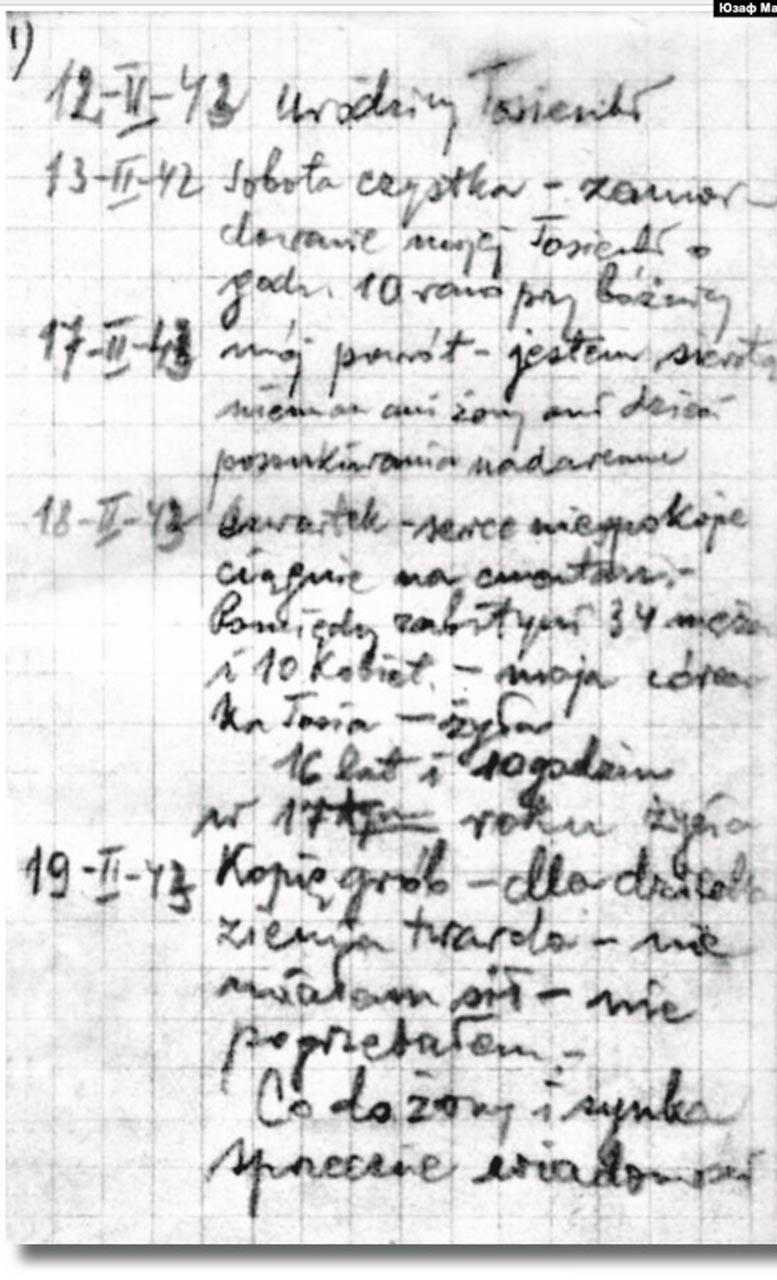 Юзаф Ма
1)
12-II-43 urodziny Tosieńki
13-II-42 sobota czystka - zamor-
dowanie mojej Tosieńki o
godz. 10 rano przy bóżnicy
17-II-43 mój powrót - jestem sierotą
niemam ani żony ani dzieci
poszukiwania nadaremne
18-II-43 czwartek - serce niespokojne
ciągnie na cmentarz.-
Pomiędzy zabitymi 34 męża
i 10 kobiet. - moja córecz
ka Tosia - żyła
16 lat i 10 godzin
w 17tym roku życia
19-II-43 Kopię grób - dla dziecka
ziemia twarda - nie
miałam sił - nie
pogrzebałem -
Co do żony i synka
sprzeczne wiadomości